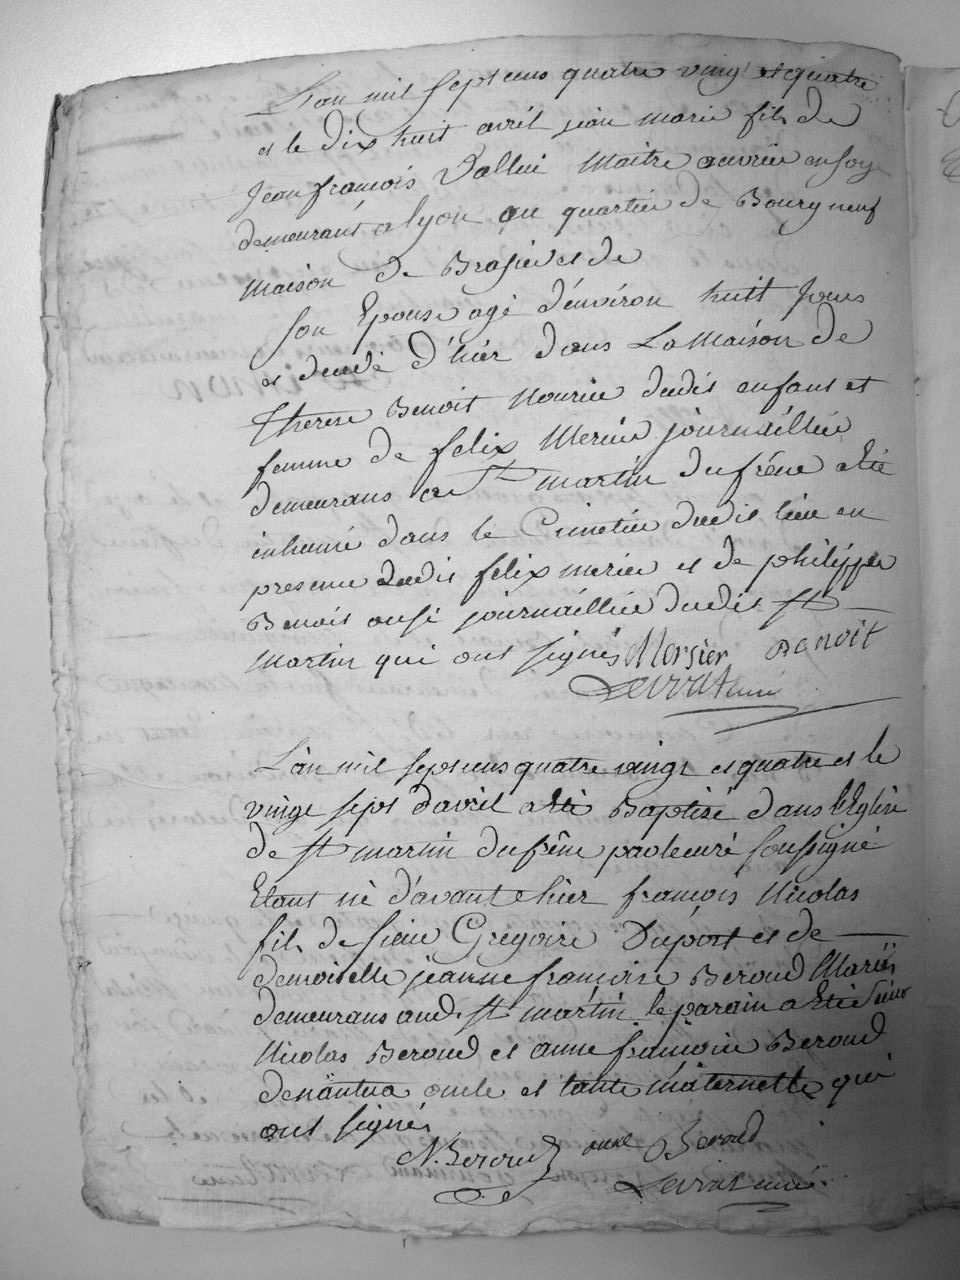 L'an mil sept cens quatre vingt et quatre
et le dix huit avril jean marie fils de
Jean françois Vallui Maitre ouvrier en soye
demeurant a lyon au quartier de Bourg neuf
Maison de Brasier et de
son Epouse agé d'environ huit Jours
et decedé d'hier dans La Maison de
therese Benoit Nourice dudit enfant et
femme de felix Mercier journaillier
demeurans a St martin du frêne a Eté
inhumé dans le Cimetiere dudit lieu en
presence dudit felix mercier et de philippe
Benoit aussi journaillier dudit St
Martin qui ont signés Mersier Benoit
Levrat curé
L'an mil sept cens quatre vingt et quatre et le
vingt sept d'avril a Eté Baptisé dans l'Eglise
de St martin du frêne par le curé soussigné
Etant né d'avant hier françois Nicolas
fils de sieur Gregoire Duport et de
demoiselle jeanne françoise Beroud Mariés
demeurans aud. St martin, le parain a Eté sieur
Nicolas Beroud et anne françoise Beroud
de nantua oncle et tante maternelle qui
ont signé
N. Beroud anne Beroud
Levrat curé